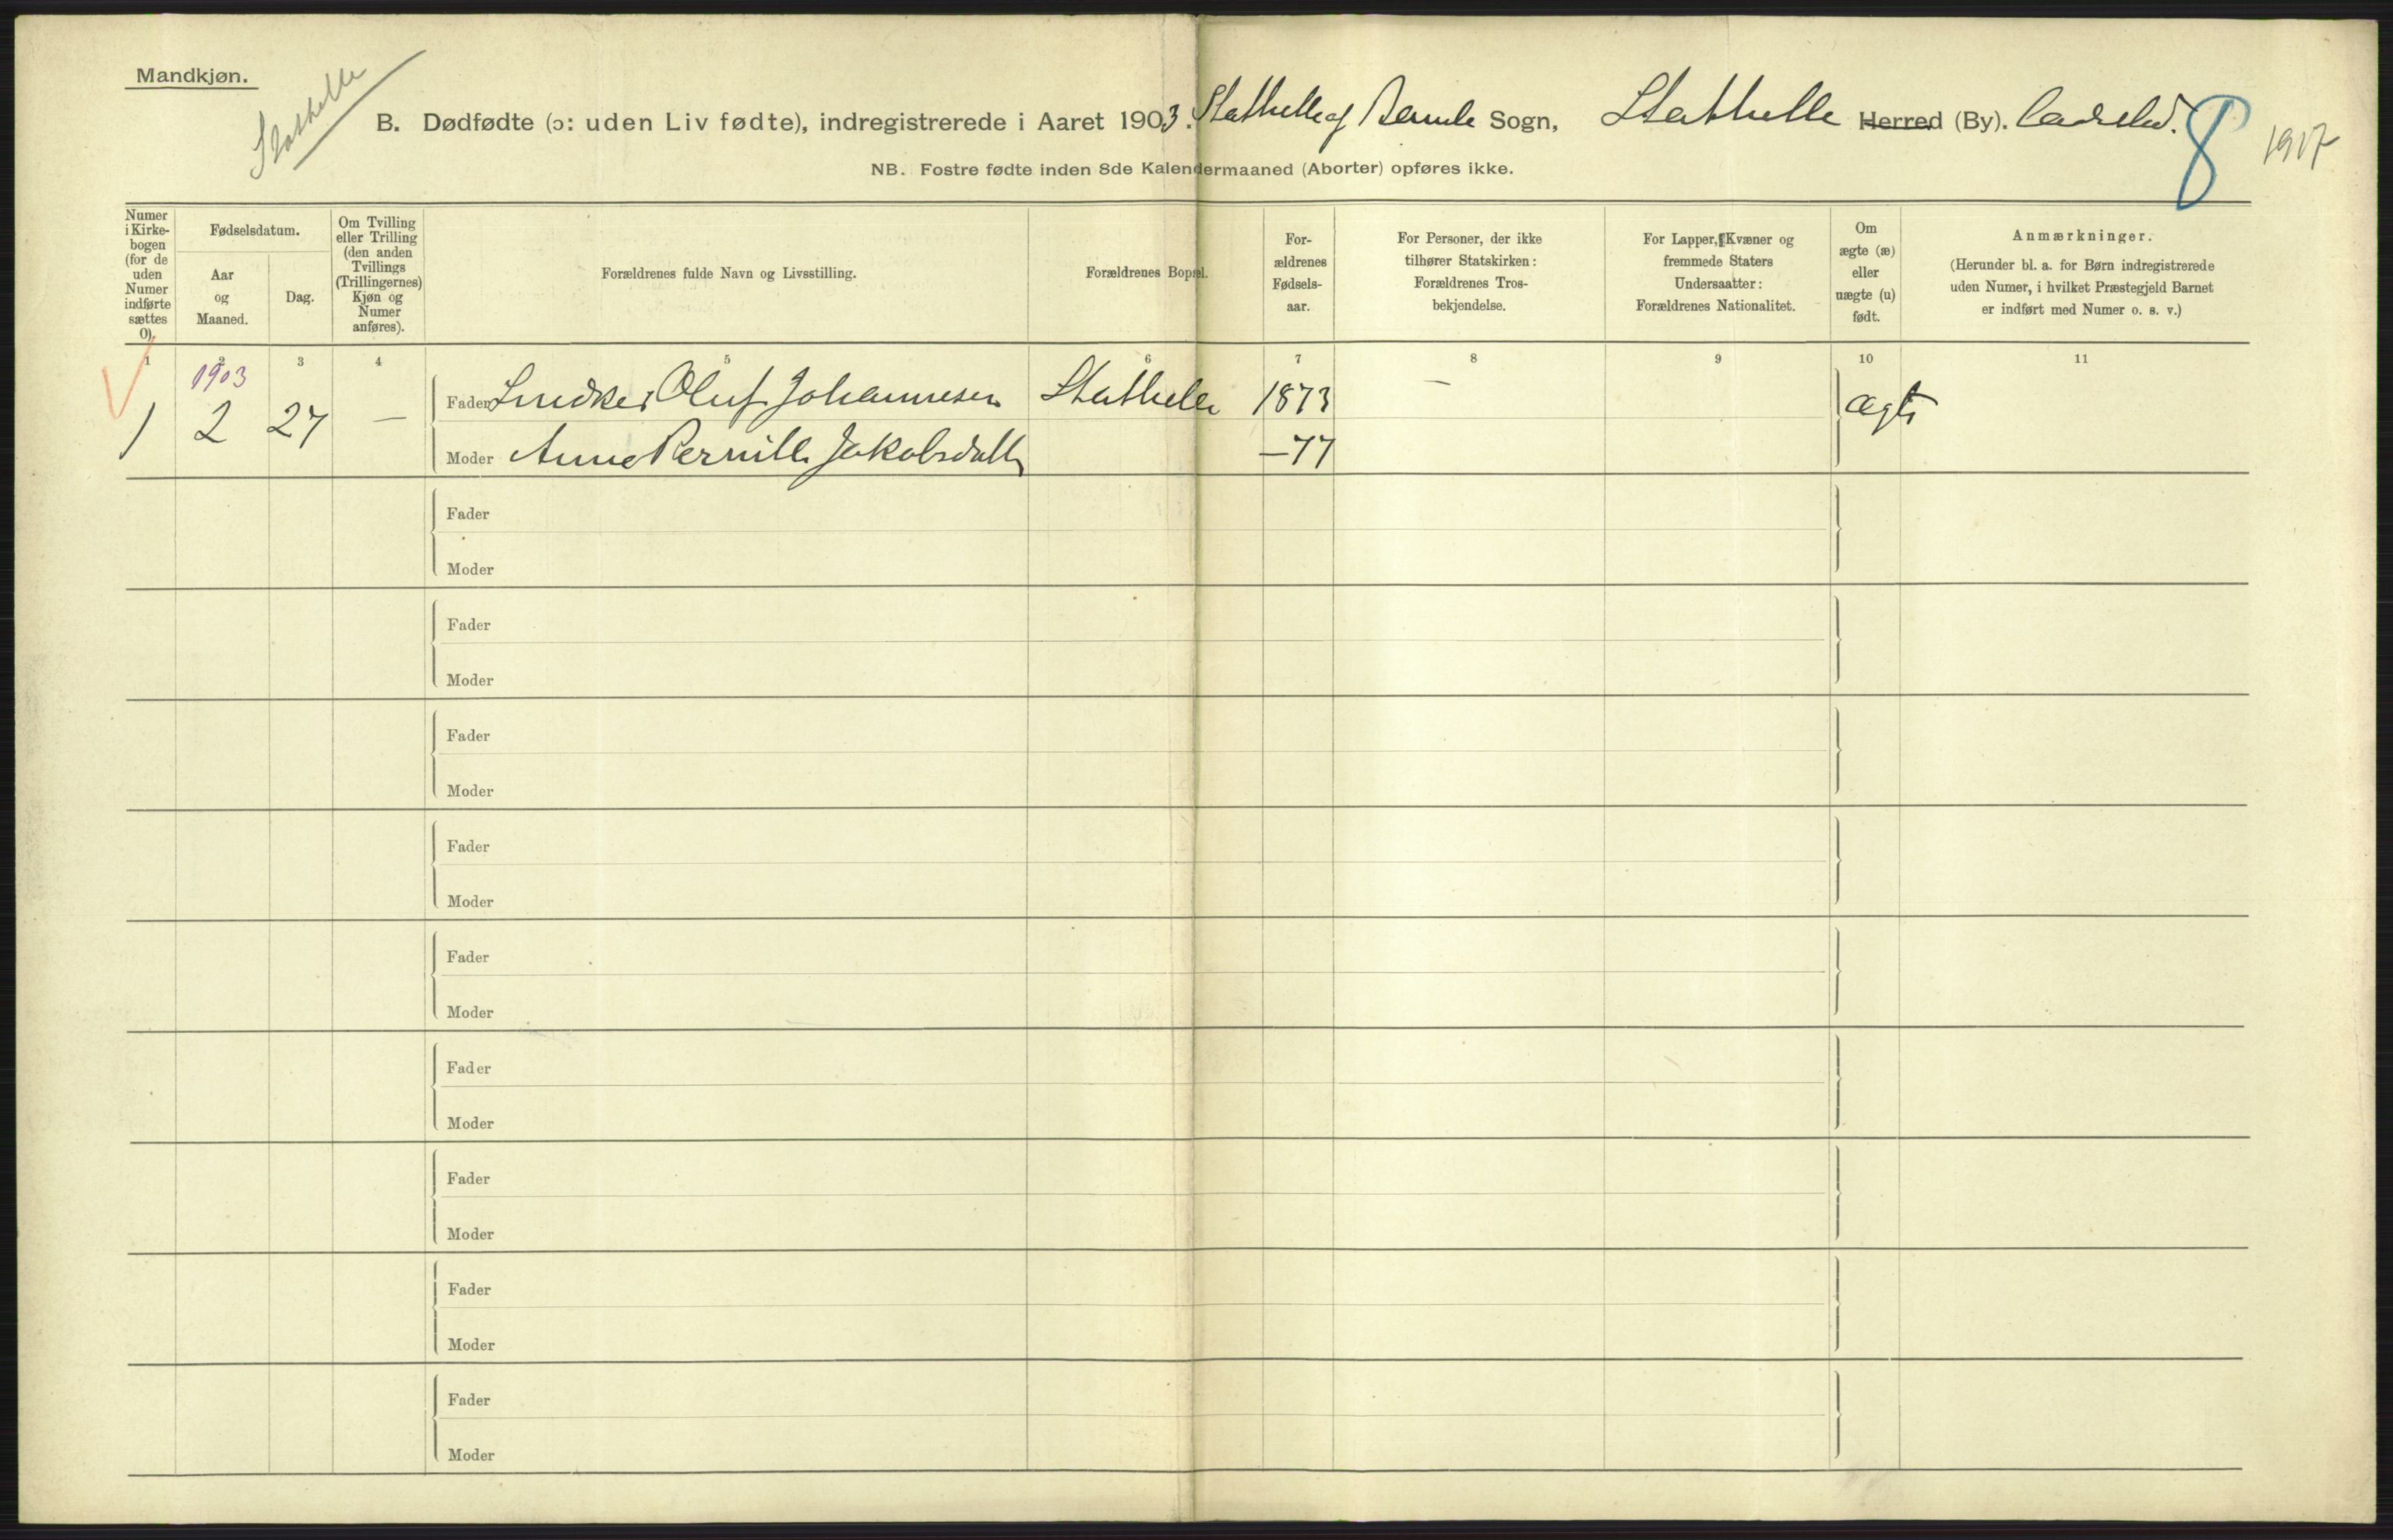 Mandkjøn.
Stathelle
B. Dødfødte (ɔ: uden Liv fødte), indregistrerede i Aaret 1903. Stathelle af Bamle Sogn, Stathelle Herred (By). Ladested. 8 1917
NB. Fostre fødte inden 8de Kalendermaaned (Aborter) opføres ikke.
Numer i Kirke-bogen (for de uden Numer indførte sættes 0).
Fødselsdatum.
Aar og Maaned.
Dag.
Om Tvilling eller Trilling (den anden Tvillings (Trillingernes) Kjøn og Numer anføres).
Forældrenes fulde Navn og Livsstilling.
Forældrenes Bopæl.
For-ældrenes Fødsels-aar.
For Personer, der ikke tilhører Statskirken: Forældrenes Tros-bekjendelse.
For Lapper, Kvæner og fremmede Staters Undersaatter: Forældrenes Nationalitet.
Om ægte (æ) eller uægte (u) født.
Anmærkninger.
(Herunder bl. a. for Børn indregistrerede uden Numer, i hvilket Præstegjeld Barnet er indført med Numer o. s. v.)
1 2 3 4 5 6 7 8 9 10 11
1903
1 2 27 — Fader Snedker Oluf Johannesen Stathelle 1873 — ægte
Moder Anne Pernille Jakobsdatter —77
Fader
Moder
Fader
Moder
Fader
Moder
Fader
Moder
Fader
Moder
Fader
Moder
Fader
Moder
Fader
Moder
Fader
Moder